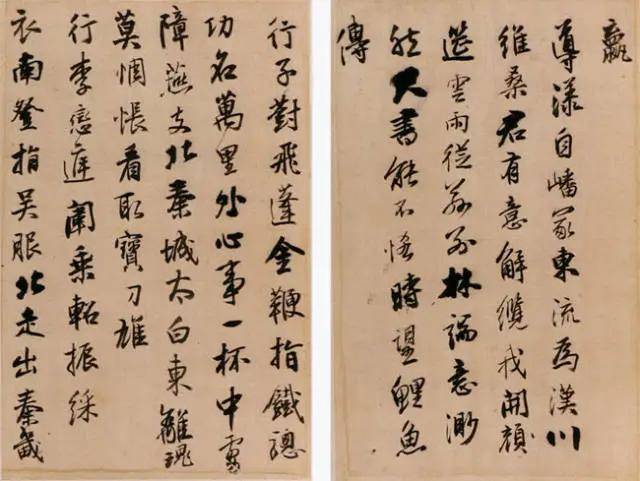 贏
導漾自嶓冢東流為漢川
維桑君有意解纜我開顏
筵雲雨從茲別林端意渺
然尺書能不恡時望鯉魚
傳
行子對飛蓬金鞭指鐵驄
功名萬里外心事一杯中虜
障燕支北秦城太白東離魂
莫惆悵看取寶刀雄
行李戀庭闈乘軺振綵
衣南登指吳服北走出秦畿